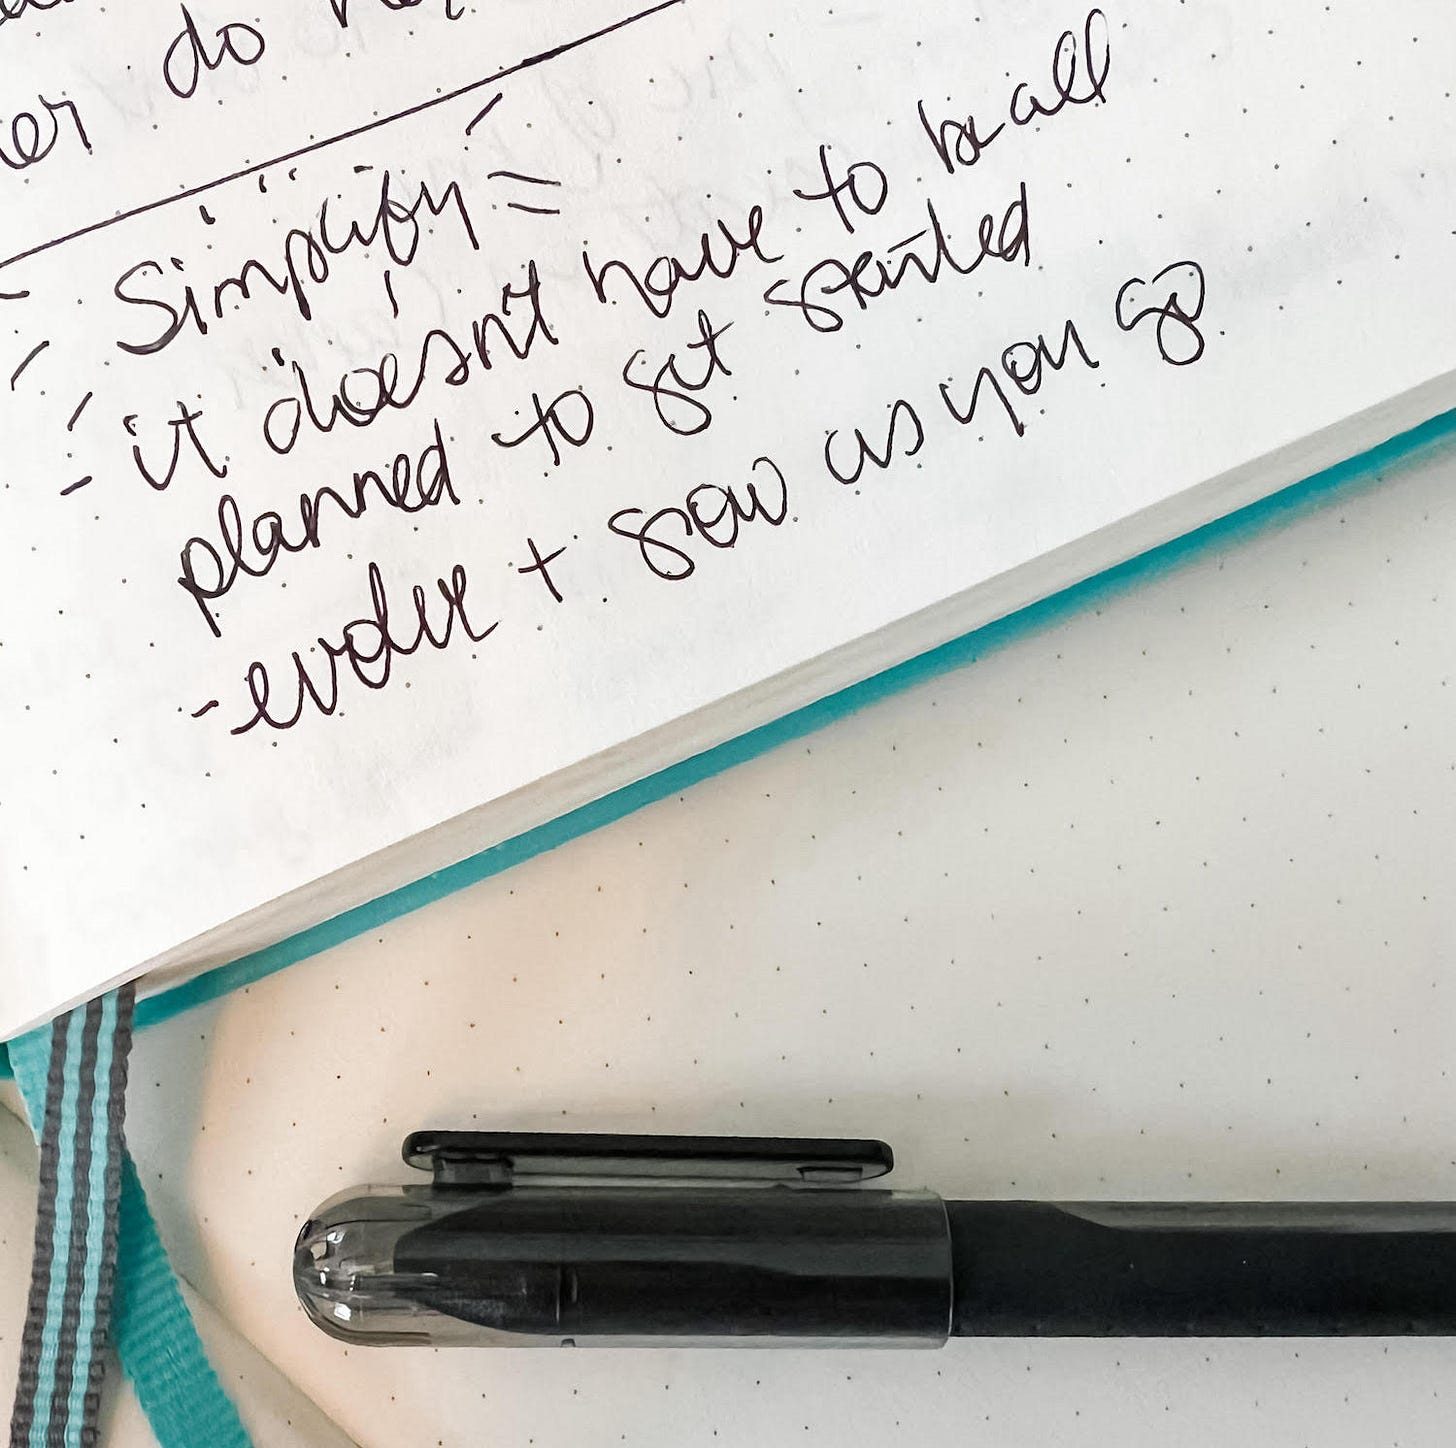 do
Simplify
- it doesn't have to be all
planned to get started
- evolve + grow as you go